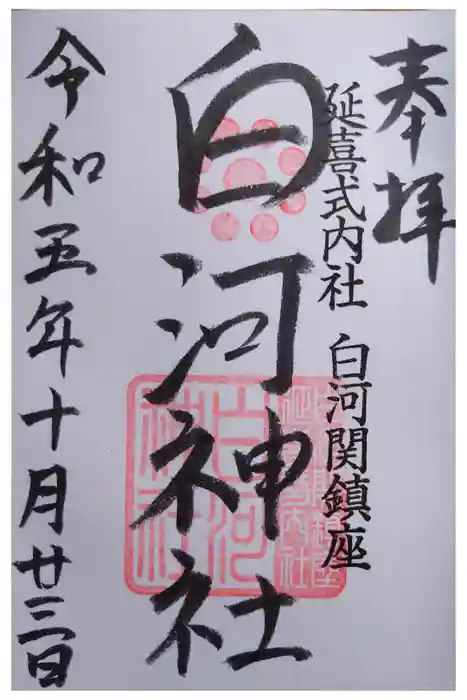 奉拝
延喜式内社 白河関鎮座
白河神社
令和五年十月廿三日
白河神社